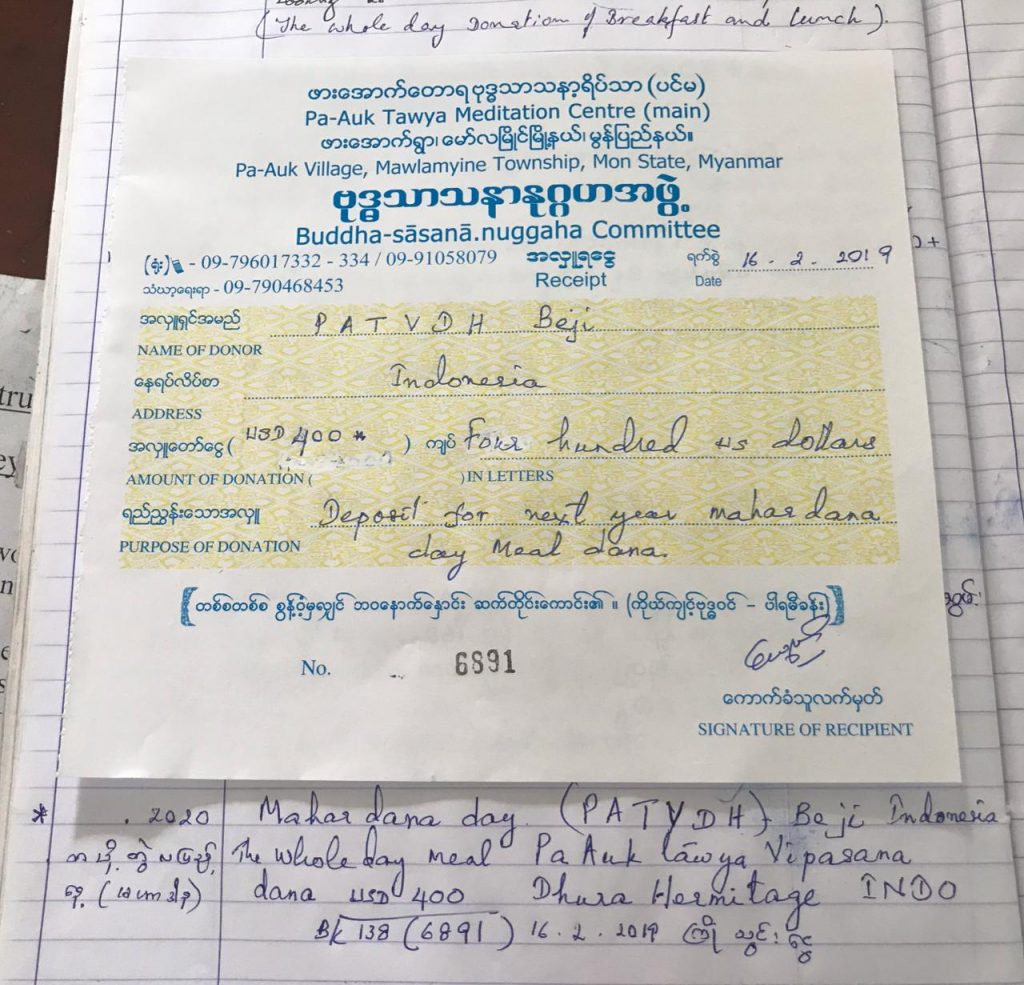 (The whole day Donation of Breakfast and Lunch).
ဖားအောက်တောရဗုဒ္ဓသာသနာ့ရိပ်သာ (ပင်မ)
Pa-Auk Tawya Meditation Centre (main)
ဖားအောက်ရွာ၊ မော်လမြိုင်မြို့နယ်၊ မွန်ပြည်နယ်။
Pa-Auk Village, Mawlamyine Township, Mon State, Myanmar
ဗုဒ္ဓသာသနာနုဂ္ဂဟအဖွဲ့
Buddha-sāsanā.nuggaha Committee
(ရုံး) - 09-796017332 - 334 / 09-91058079 အလှူရငွေ ရက်စွဲ 16 . 2 . 2019
သံဃာ့ရေးရာ - 09-790468453 Receipt Date
အလှူရှင်အမည် PATVDH Beji
NAME OF DONOR
နေရပ်လိပ်စာ Indonesia
ADDRESS
အလှူတော်ငွေ ( USD 400 * ) ကျပ် Four hundred us dollars
AMOUNT OF DONATION ( ) IN LETTERS
ရည်ညွှန်းသောအလှူ Deposit for next year mahar dana
PURPOSE OF DONATION day Meal dana.
[တစ်စတစ်စ စွန့်ဝံ့မှလျှင် ဘဝနောက်နှောင်း ဆက်တိုင်းကောင်း၏ ။ (ကိုယ်ကျင့်ဗုဒ္ဓဝင် - ပါရမီခန်း)]
No. 6891
ကောက်ခံသူလက်မှတ်
SIGNATURE OF RECIPIENT
* . 2020 Mahar dana day (PATVDH) Beji Indonesia
The whole day meal Pa Auk tāwya Vipasana
dana USD 400 Dhura Hermitage INDO
Bk 138 (6891) 16 . 2 . 2019